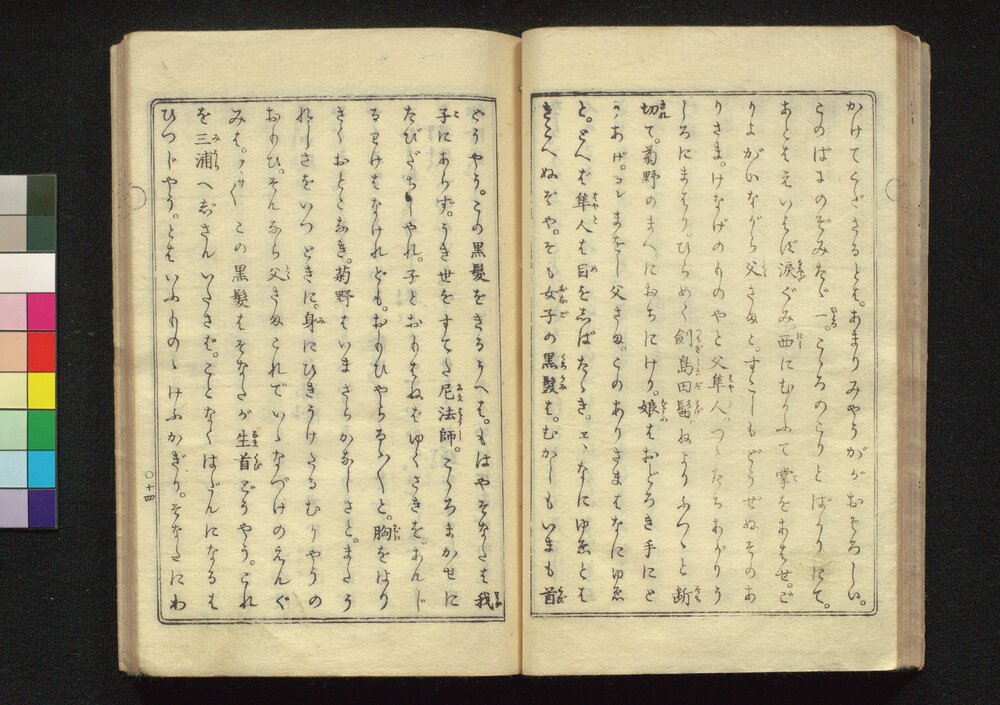 かけてくださるとは。あまりみやうがゞおそろしい。
このばにのぞみたゞ一。こゝろのこりとばかりにて。
あとはえいはず涙ぐみ。西にむかふて掌をあはせ。ご
りよがいながら父さまと。すこしもどうぜぬそのあ
りさま。けなげのものやと父隼人。つゝたちあがりう
しろにまはり。ひらめく劍島田髷。ねよりふつゝと断
切て。菊野のまへにおちにけり。娘はおどろき手にと
りあげ。コレまをし父さま。このありさまはなにゆゑ
と。とへば隼人は目をしばたゝき。エヽなにゆゑとは
きこへぬぞや。そも女子の黒髪は。むかしもいまも首
どうやう。この黒髪をきるうへは。もはやそなたは我
子にあらず。うき世をすてた尼法師。こゝろまかせに
たびだちしやれ。子とおもはねばゆくさきを。あんじ
るわけはなけれども。おもひやらるゝと。胸をはり
さくおとゝなき。菊野はいまさらかなしさと。またう
れしさをいつときに。身にひきうけたるむりやうの
おもひ。そんなら父さまこれでいゝなづけのえんぐ
みは。ヲヽサ〳〵この黒髪はそなたが生首どうやう。これ
を三浦へぢさんいたさば。ことなくはだんになるは
ひつぢやう。とはいふものゝけふかぎり。そなたにわ
○十四